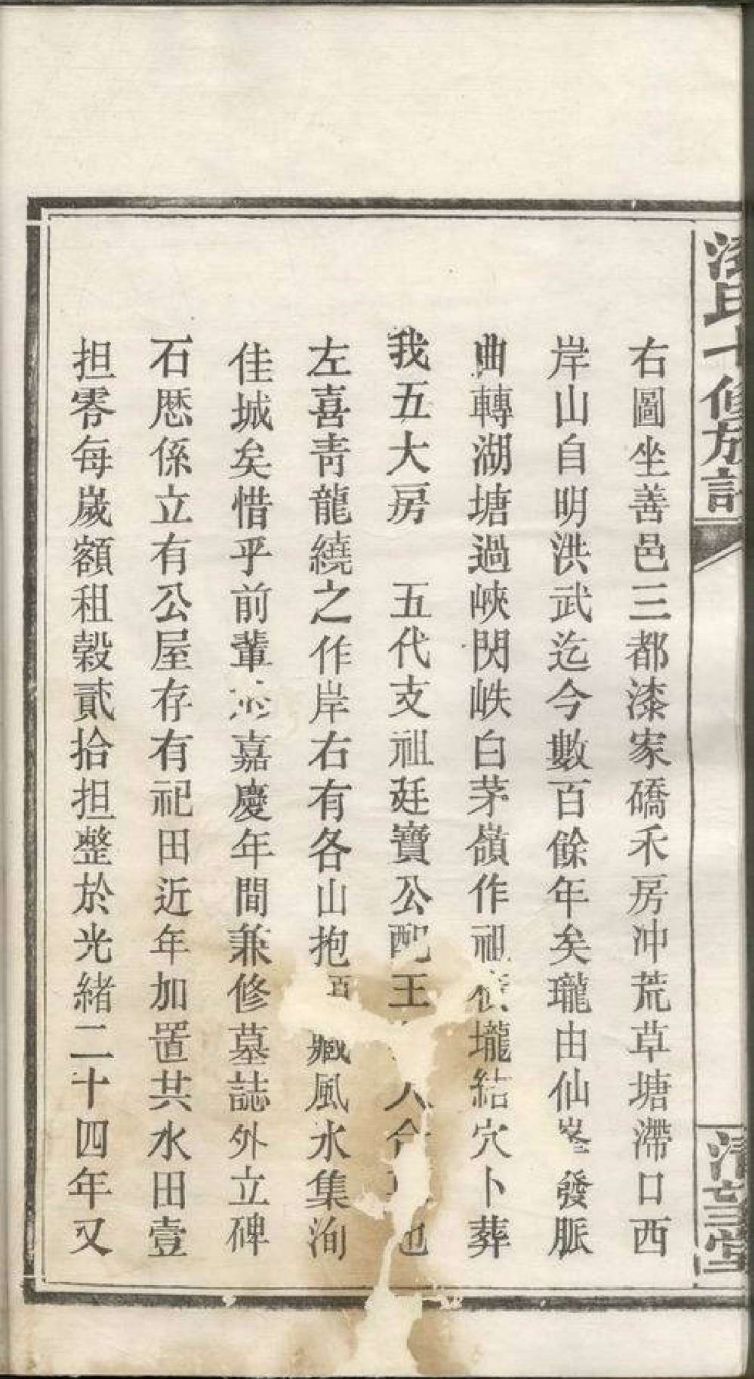 右圖坐善邑三都漆家礄禾房冲荒草塘滯口西
岸山自明洪武迄今數百餘年矣瓏由仙峯發脈
曲轉湖塘過峽閃峡白茅嶺作祖壠結穴卜葬
我五大房　五代支祖廷寶公配王人合也
左喜青龍繞之作岸右有各山抱藏風水集洵
佳城矣惜乎前輩嘉慶年間兼修墓誌外立碑
石厯係立有公屋存有祀田近年加置共水田壹
担零每嵗額租穀貳拾担整於光緒二十四年又
十修族
清望堂